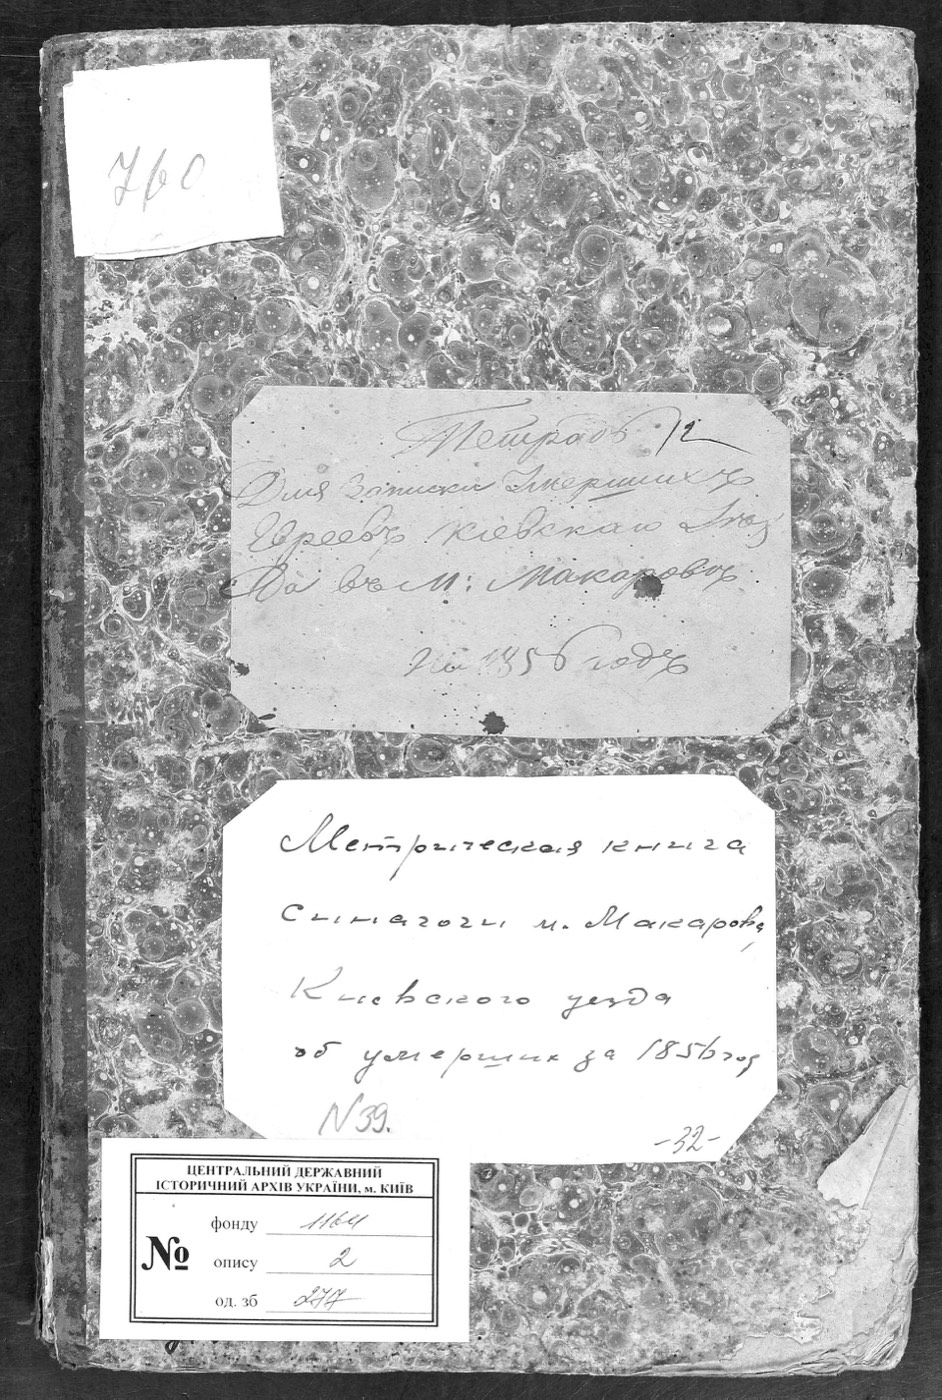 760
Тетрадь 12
Для записки Умершихъ
Евреевъ Кіевскаго Уѣз
Да въ М: Макаровѣ
На 1856 годъ
Метрическая книга
синагоги м. Макарова,
Киевского уезда
об умерших за 1856 год
N 39.
-32-
ЦЕНТРАЛЬНИЙ ДЕРЖАВНИЙ
ІСТОРИЧНИЙ АРХІВ УКРАЇНИ, м. КИЇВ
№
фонду 1164
опису 2
од. зб 277